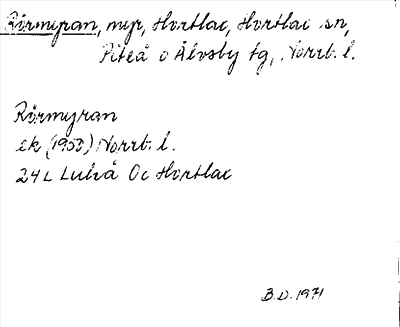 Rörmyran, myr, Hortlac, Hortlac sn,
Piteå o Älvsby tg, Norrb. l.
Rörmyran
ek (1958) Norrb. l.
24L Luleå Oc Hortlac
B.D. 1971